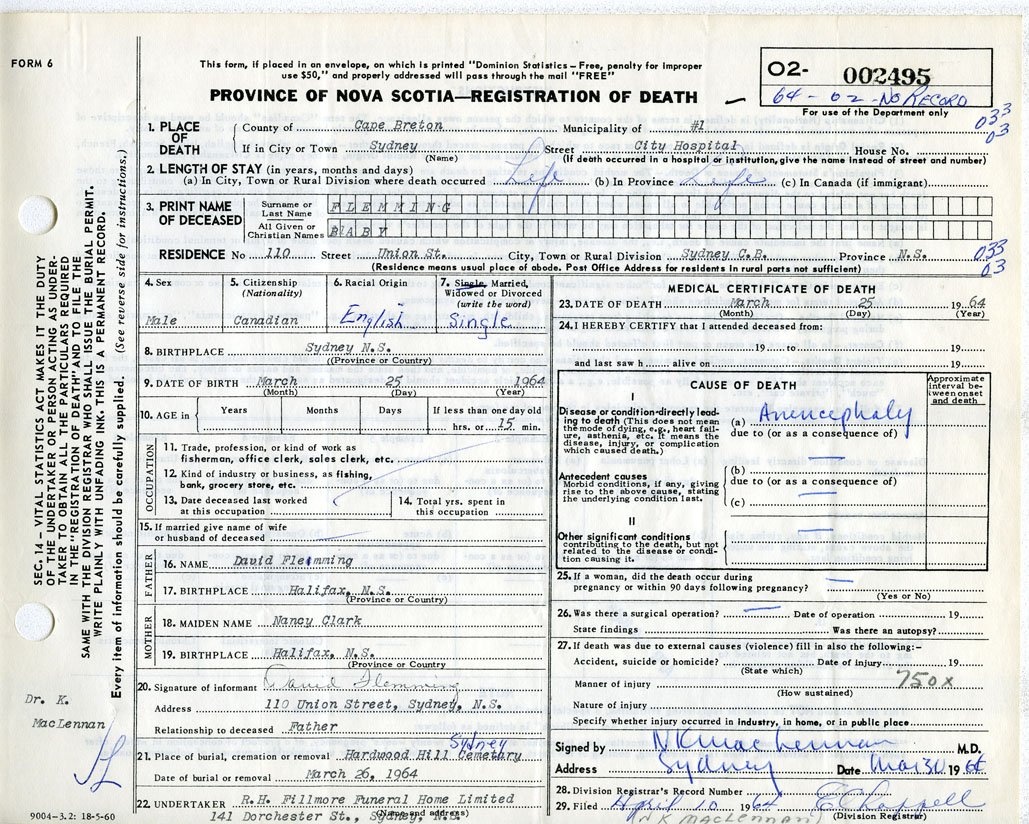 FORM 6
This form, if placed in an envelope, on which is printed "Dominion Statistics - Free, penalty for improper
use $50," and properly addressed will pass through the mail "FREE"
PROVINCE OF NOVA SCOTIA—REGISTRATION OF DEATH
02- 002495
64-02-No RECORD
For use of the Department only
033
03
1. PLACE OF DEATH
County of Cape Breton Municipality of #1
If in City or Town Sydney Street City Hospital House No.
(Name) (If death occurred in a hospital or institution, give the name instead of street and number)
2. LENGTH OF STAY (in years, months and days)
(a) In City, Town or Rural Division where death occurred Life (b) In Province Life (c) In Canada (if immigrant)
3. PRINT NAME OF DECEASED
Surname or Last Name FLEMMING
All Given or Christian Names BABY
RESIDENCE No 110 Street Union St. City, Town or Rural Division Sydney C.B. Province N.S.
(Residence means usual place of abode. Post Office Address for residents in rural parts not sufficient)
033
03
4. Sex
Male
5. Citizenship
(Nationality)
Canadian
6. Racial Origin
English
7. Single, Married,
Widowed or Divorced
(write the word)
Single
8. BIRTHPLACE Sydney N.S.
(Province or Country)
9. DATE OF BIRTH March 25 1964
(Month) (Day) (Year)
10. AGE in
Years Months Days If less than one day old
hrs. or 15 min.
OCCUPATION
11. Trade, profession, or kind of work as
fisherman, office clerk, sales clerk, etc.
12. Kind of industry or business, as fishing,
bank, grocery store, etc.
13. Date deceased last worked
at this occupation
14. Total yrs. spent in
this occupation
15. If married give name of wife
or husband of deceased
FATHER
16. NAME David Flemming
17. BIRTHPLACE Halifax, N.S.
(Province or Country)
MOTHER
18. MAIDEN NAME Nancy Clark
19. BIRTHPLACE Halifax, N.S.
(Province or Country
20. Signature of informant David Flemming
Address 110 Union Street, Sydney, N.S.
Relationship to deceased Father
Sydney
21. Place of burial, cremation or removal Hardwood Hill Cemetary
Date of burial or removal March 26, 1964
22. UNDERTAKER R.H. Fillmore Funeral Home Limited
(Name and address)
141 Dorchester St., Sydney, N.S.
MEDICAL CERTIFICATE OF DEATH
23. DATE OF DEATH March 25 1964
(Month) (Day) (Year)
24. I HEREBY CERTIFY that I attended deceased from:
19 to 19
and last saw h alive on 19
CAUSE OF DEATH
Approximate
interval between
onset
and death
I
Disease or condition directly leading
to death (This does not mean
the mode of dying, e.g., heart failure,
asthenia, etc. It means the
disease, injury, or complication
which caused death.)
(a) Anencephaly
due to (or as a consequence of)
Antecedent causes
Morbid conditions, if any, giving
rise to the above cause, stating
the underlying condition last.
(b)
due to (or as a consequence of)
(c)
II
Other significant conditions
contributing to the death, but not
related to the disease or condition
causing it.
25. If a woman, did the death occur during
pregnancy or within 90 days following pregnancy?
(Yes or No)
26. Was there a surgical operation? Date of operation 19
State findings Was there an autopsy?
27. If death was due to external causes (violence) fill in also the following:-
Accident, suicide or homicide? Date of injury 19
(State which)
Manner of injury 750x
(How sustained)
Nature of injury
Specify whether injury occurred in industry, in home, or in public place
Signed by N K MacLennan M.D.
Address Sydney Date Mar 30 1964
28. Division Registrar's Record Number
29. Filed April 10 1964 E C Chappell
(N K MACLENNAN) (Division Registrar)
SEC. 14 - VITAL STATISTICS ACT MAKES IT THE DUTY
OF THE UNDERTAKER OR PERSON ACTING AS UNDERTAKER
TO OBTAIN ALL THE PARTICULARS REQUIRED
IN THE "REGISTRATION OF DEATH" AND TO FILE THE
SAME WITH THE DIVISION REGISTRAR WHO SHALL ISSUE THE BURIAL PERMIT.
WRITE PLAINLY WITH UNFADING INK. THIS IS A PERMANENT RECORD.
Every item of information should be carefully supplied. (See reverse side for instructions.)
Dr. K.
MacLennan
9004-3.2: 18-5-60